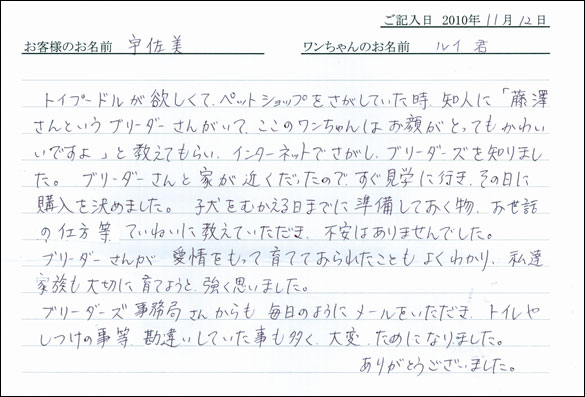 ご記入日 2010年 11月 12日
お客様のお名前 宇佐美 ワンちゃんのお名前 ルイ君
トイプードルが欲しくて、ペットショップをさがしていた時、知人に「藤澤
さんというブリーダーさんがいて、ここのワンちゃんはお顔がとってもかわい
いですよ」と教えてもらい、インターネットでさがし、ブリーダーズを知りまし
た。 ブリーダーさんと家が近くだったので、すぐ見学に行き、その日に
購入を決めました。 子犬をむかえる日までに準備しておく物、お世話
の仕方等、ていねいに教えていただき、不安はありませんでした。
ブリーダーさんが、愛情をもって育てておられたことも よくわかり、私達
家族も大切に育てようと、強く思いました。
ブリーダーズ事務局さんからも 毎日のようにメールをいただき、トイレや
しつけの事等、勘違いしていた事も多く、大変、ためになりました。
ありがとうございました。